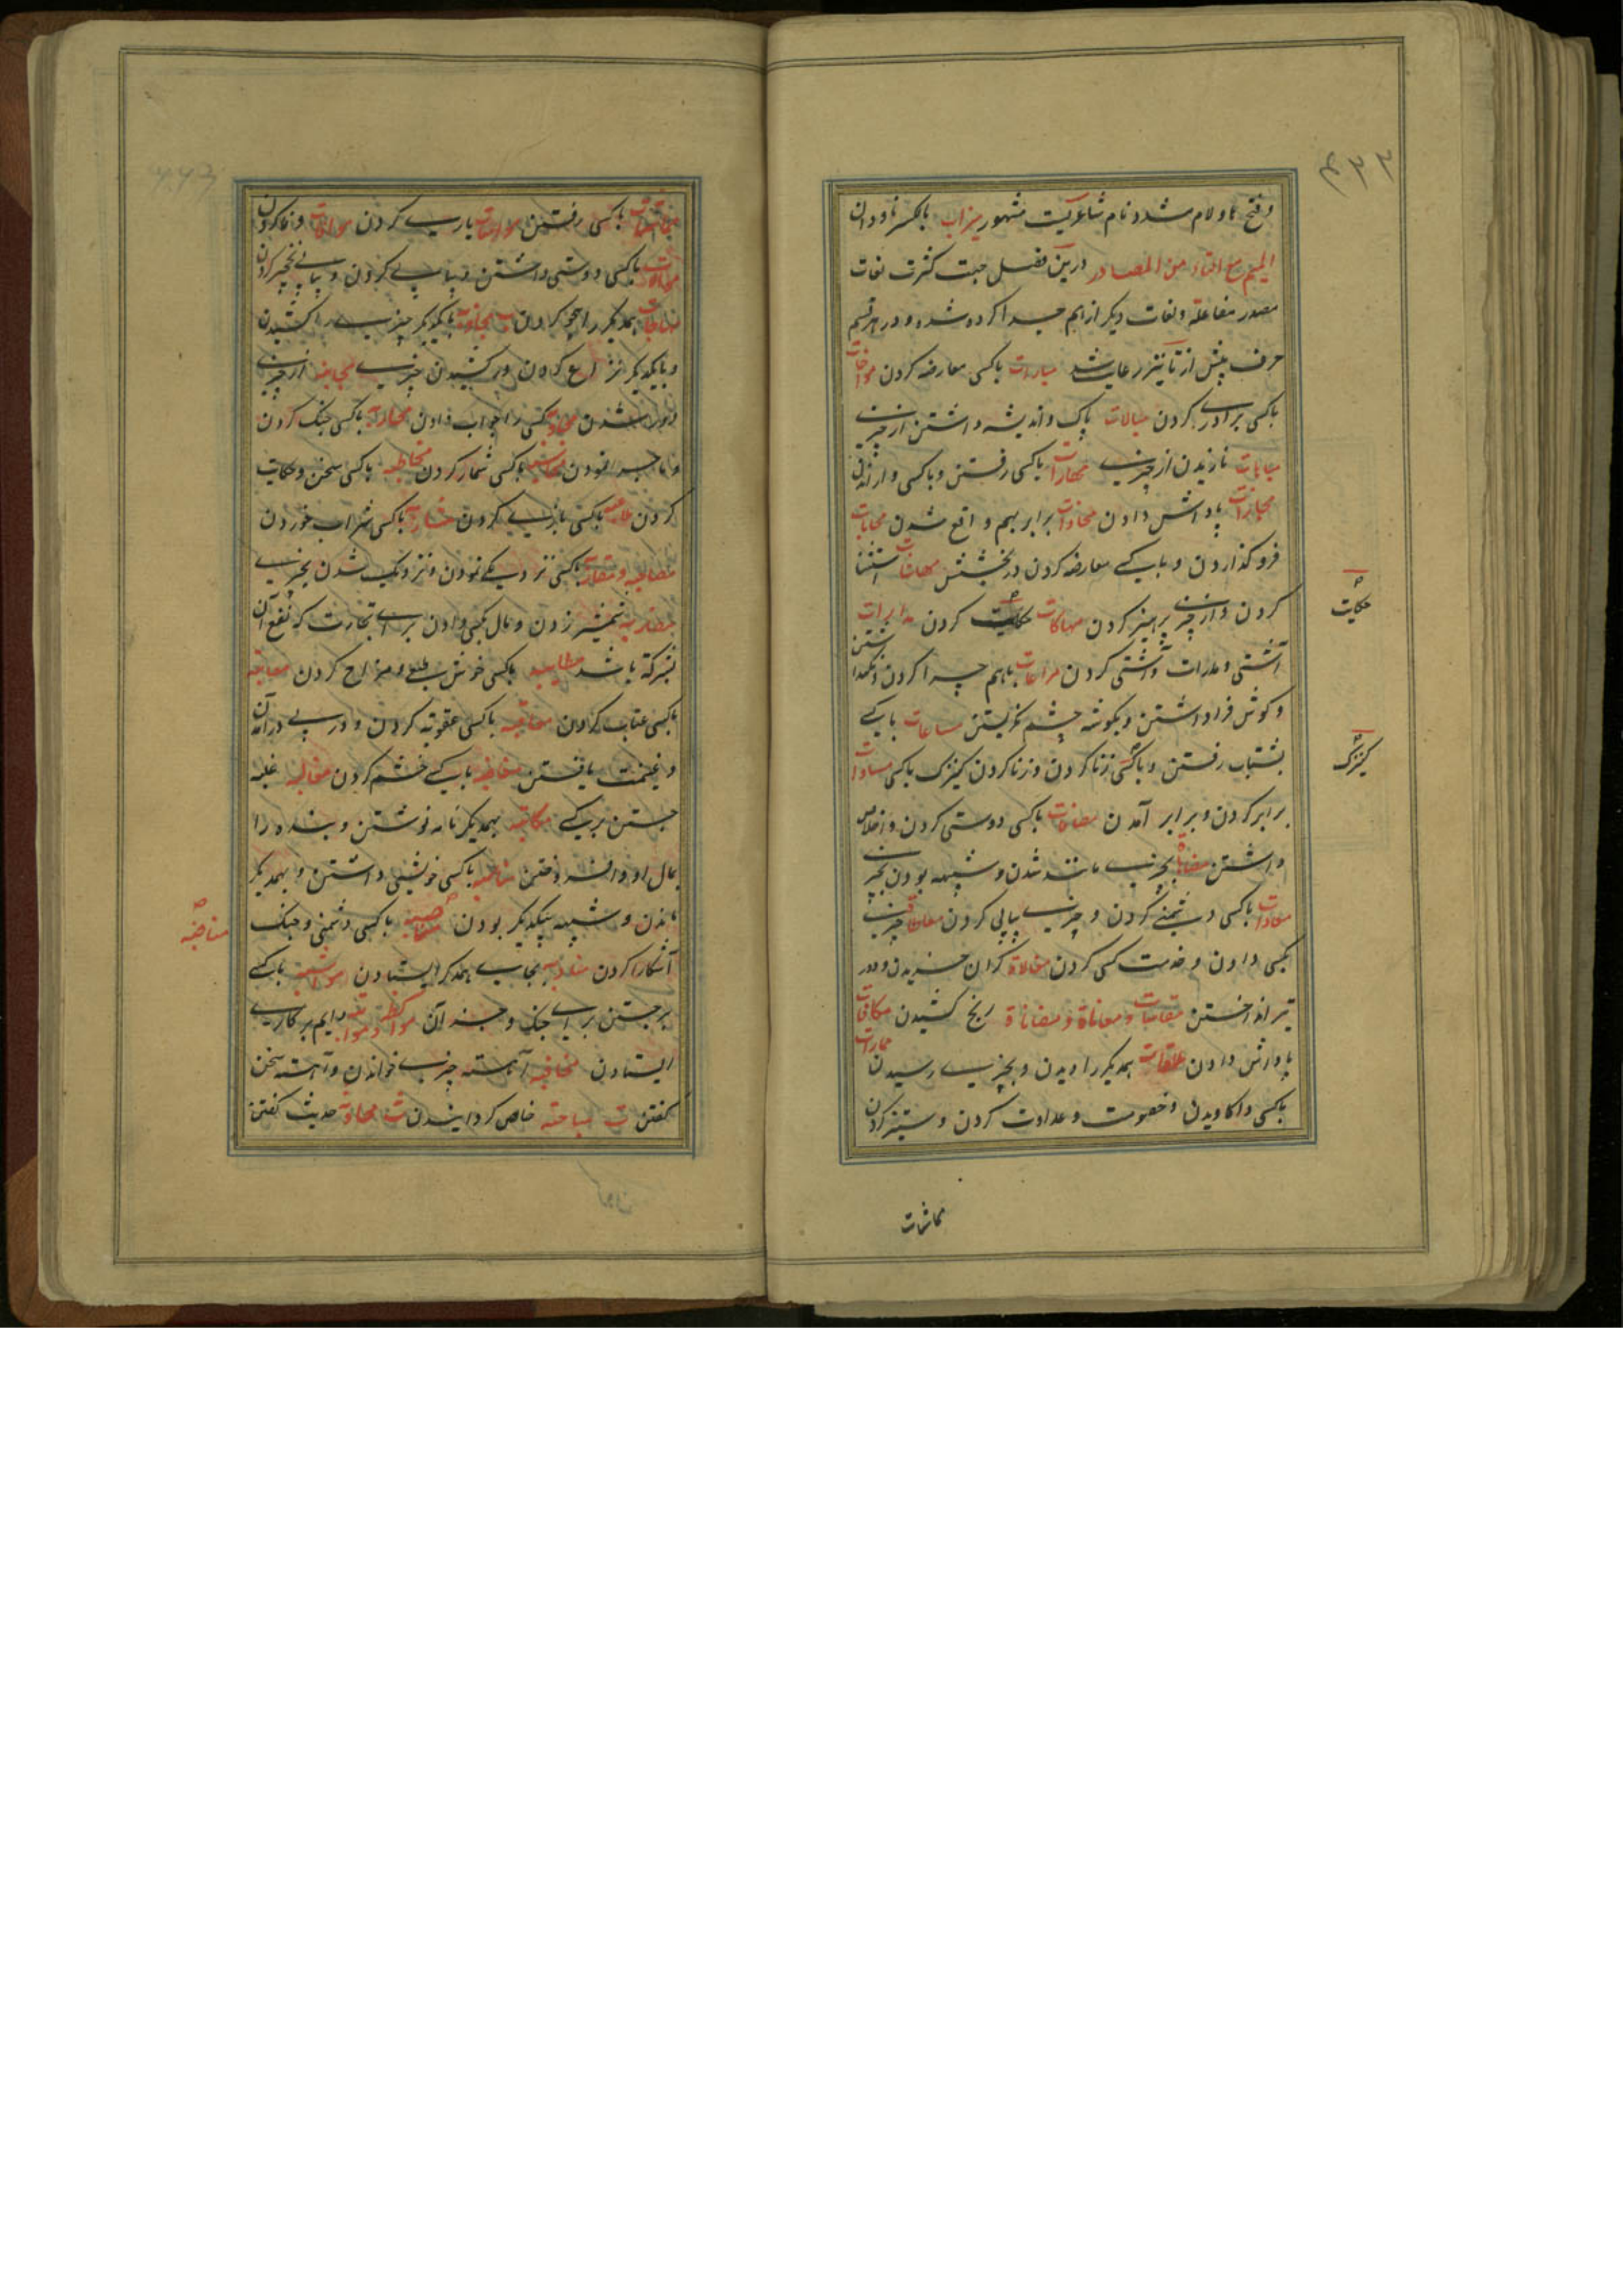 وفتح ها ولام مشدد نام شاعریست مشهور میزاب بالکسر ناودان
المیم مع التاء من المصادر درین فصل جهت کثرت لغات
مصدر مفاعلة ولغات دیگر از هم جدا کرده شد و در هر قسم
حرف پیش از تا نیز رعایت شد مبارات باکسی معارضه کردن مواخات
باکسی برادری کردن مبالات باک و اندیشه داشتن از چیزی
مباهات نازیدن از چیزی مجارات باکسی رفتن و باکسی وا راندن
مجازات پاداش دادن محاذات برابر بهم واقع شدن محابات
فرو گذاردن و با کسی معارضه کردن در بخشش محاشات استثنا
کردن و از چیزی پرهیز کردن محاکات حکایت کردن مدارات
آشتی و مدارات و آشتی کردن مراعات باهم چرا کردن و نگهداشتن
و گوش فرا داشتن و بگوشه چشم نگریستن مساعات با کسی
بشتاب رفتن و باکسی زنا کردن و زنا کردن کنیزک باکسی مساوات
برابر کردن و برابر آمدن مصافات باکسی دوستی کردن و اخلاص
داشتن مضاهاة بچیزی مانند شدن و شبیه بودن بچیزی
معادات باکسی دشمنی کردن و چیزی پیاپی کردن معاطاة چیزی
بکسی دادن و خدمت کسی کردن مغالاة گران خریدن و دور
تیر انداختن مقاسات و معاناة و مضاناة رنج کشیدن مکافات
پاداش دادن ملاقات همدیگر را دیدن و بچیزی رسیدن ممارات
باکسی واکاویدن و خصومت و عداوت کردن و ستیزه کردن
حکایت
کنیزک
مماشات
مماشات باکسی رفتن مواسات یاری کردن موافات وفا کردن
موالات باکسی دوستی داشتن و پیاپی کردن و پیاپی بچیز کردن
مهاجات همدیگر را هجو کردن مجاذبة با یکدیگر چیزی را کشیدن
و با یکدیگر نزاع کردن در کشیدن چیزی مجانبة از چیزی
دور شدن مجاوبة کسی را جواب دادن محاربة باکسی جنگ کردن
محاسبه باکسی شمار کردن مخاطبه باکسی سخن و حکایت
کردن ملاعبه باکسی بازی کردن مشاربة باکسی شراب خوردن
مصاقبه و مقاربة باکسی نزدیکی نمودن و نزدیک شدن بچیزی
مضاربه شمشیر زدن و مال بکسی دادن برای تجارت که نفع آن
بشرکة باشد مطایبه باکسی خوش طبعی و مزاح کردن معاتبه
باکسی عتاب کردن معاقبه باکسی عقوبة کردن و در پی درآمدن
و غنیمت یافتن مغاضبه با کسی خشم کردن مغالبه غلبه
جستن بر کسی مکاتبه بهمدیگر نامه نوشتن و بنده را
بمال او وا فروختن مناسبه باکسی خویشی داشتن و با همدیگر
ماندن و شبیه یکدیگر بودن مناصبه باکسی دشمنی و جنگ
آشکارا کردن مناوبه بجای همدگر ایستادن مواثبه با کسی
برجستن برای جنگ و جز آن مواکظة و مواظبة دایم بر کاری
ایستادن مخافته آهسته چیزی خواندن و آهسته سخن
گفتن ث مباحثه خاص گردانیدن ث محادثة حدیث گفتن
مناصبه